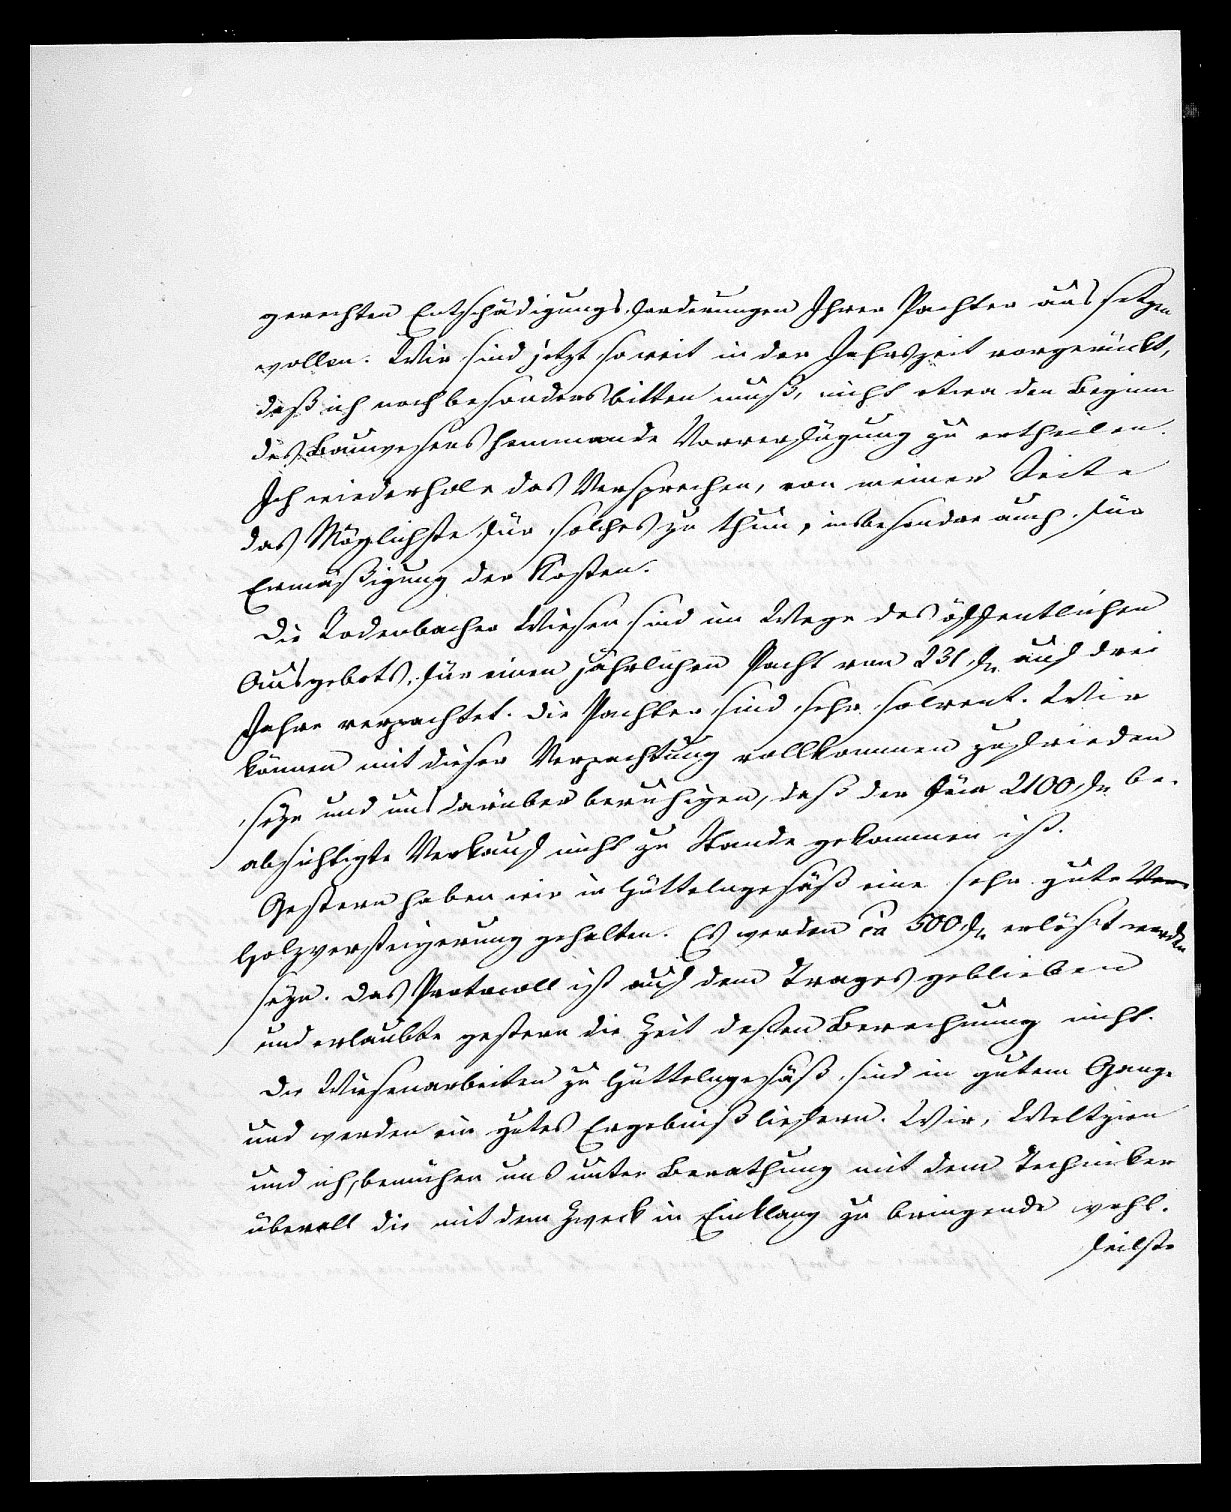 gerechten Entschädigungs Forderungen Ihrer Pachter aussetzen
wollen. Wir sind jetzt soweit in der Jahrszeit vorgerückt,
daß ich noch besonders bitten muß, nicht etwa den Beginn
des Bauwesens hemmende Vorverfügung zu ertheilen.
Ich wiederhole das Versprechen, von meiner Seite
das Möglichste für solches zu thun, insbesondre auch für
Ermäßigung der Kosten.
Die Rodenbacher Wiesen sind im Wege des öffentlichen
Ausgebots, für einen jährlichen Pacht von 231 fl. auf drei
Jahre verpachtet. Die Pachter sind sehr solvent. Wir
können mit dieser Verpachtung vollkommen zufrieden
seyn und uns darüber beruhigen, daß der für 2100 fl. be-
absichtigte Verkauf nicht zu Stande gekommen ist.
Gestern haben wir in Hüttelngesäß eine sehr gute Ver-
Holzversteigerung gehalten. Es werden ca 500 fl. erlößt worden
seyn. Das Protocoll ist auf dem Trages geblieben
und erlaubte gestern die Zeit deßen Berechnung nicht.
Die Wiesenarbeiten zu Hüttelngesäß sind in gutem Gange
und werden ein gutes Ergebniß liefern. Wir, Weltzien
und ich, bemühen uns unter Berathung mit dem Techniker
überall die mit dem Zweck in Einklang zu bringende wohl-
feilste